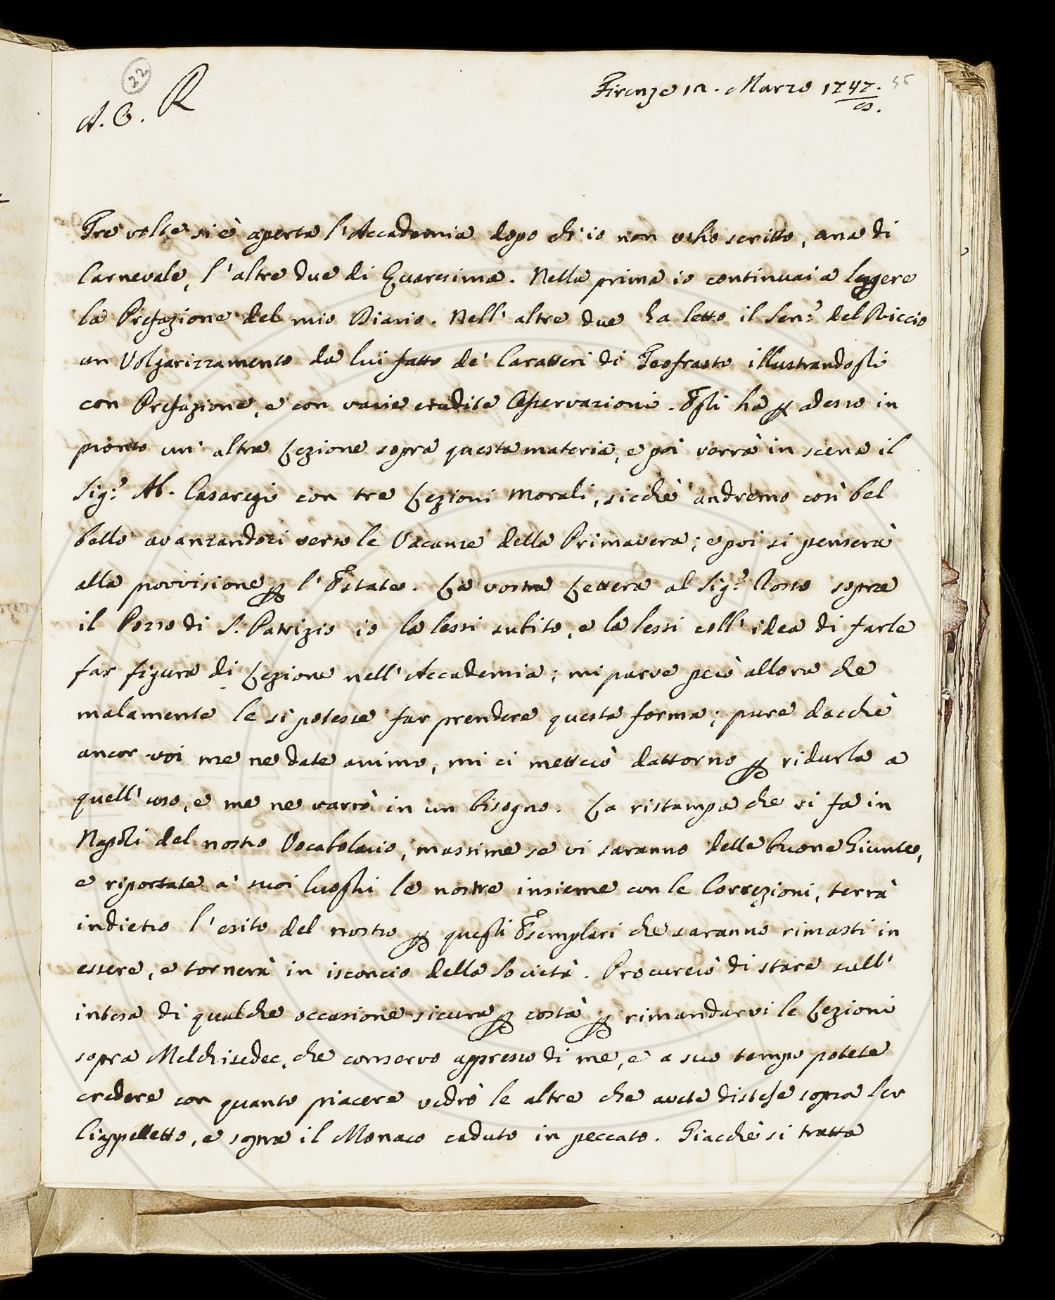 22
A. C. R
Firenze 12. Marzo 1747. 55
Tre volte si è aperta l'Accademia dopo ch'io non v'ho scritto, una di
Carnevale, l'altre due di Quaresima. Nella prima io continuai a leggere
la Prefazione del mio Diario. Nell'altre due ha letto il Sen.e del Riccio
un Volgarizzamento da lui fatto de' Caratteri di Teofrasto illustrandogli
con Prefazione, e con varie erudite Osservazioni. Egli ha p adesso in
pronto un'altra Lezione sopra questa materia, e poi verrà in scena il
Sig.e Ab. Casaregi con tre Lezioni morali, sicchè andremo così bel
bello avanzandoci verso le Vacanze della Primavera; e poi si penserà
alla provvisione p l'Estate. La vostra Lettera al Sig.e Rosso sopra
il Pozzo di S. Patrizio io la lessi subito, e la lessi coll'idea di farle
far figura di Lezione nell'Accademia; mi parve però allora che
malamente le si potesse far prendere questa forma; pure dacchè
ancor voi me ne date animo, mi ci metterò dattorno p ridurla a
quell'uso, e me ne varrò in un bisogno. La ristampa che si fa in
Napoli del nostro Vocabolario, massime se vi saranno delle buone Giunte,
e riportate a' suoi luoghi le nostre insieme con le Correzioni, terrà
indietro l'esito del nostro p quegli Esemplari che saranno rimasti in
essere, e tornerà in isconcio della Società. Procurerò di stare sull'
intesa di qualche occasione sicura p costà p rimandarvi le Lezioni
sopra Melchisedec, che conservo appresso di me, e a suo tempo potete
credere con quanto piacere vedrò le altre che avete distese sopra Ser
Ciappelletto, e sopra il Monaco caduto in peccato. Giacchè si tratta